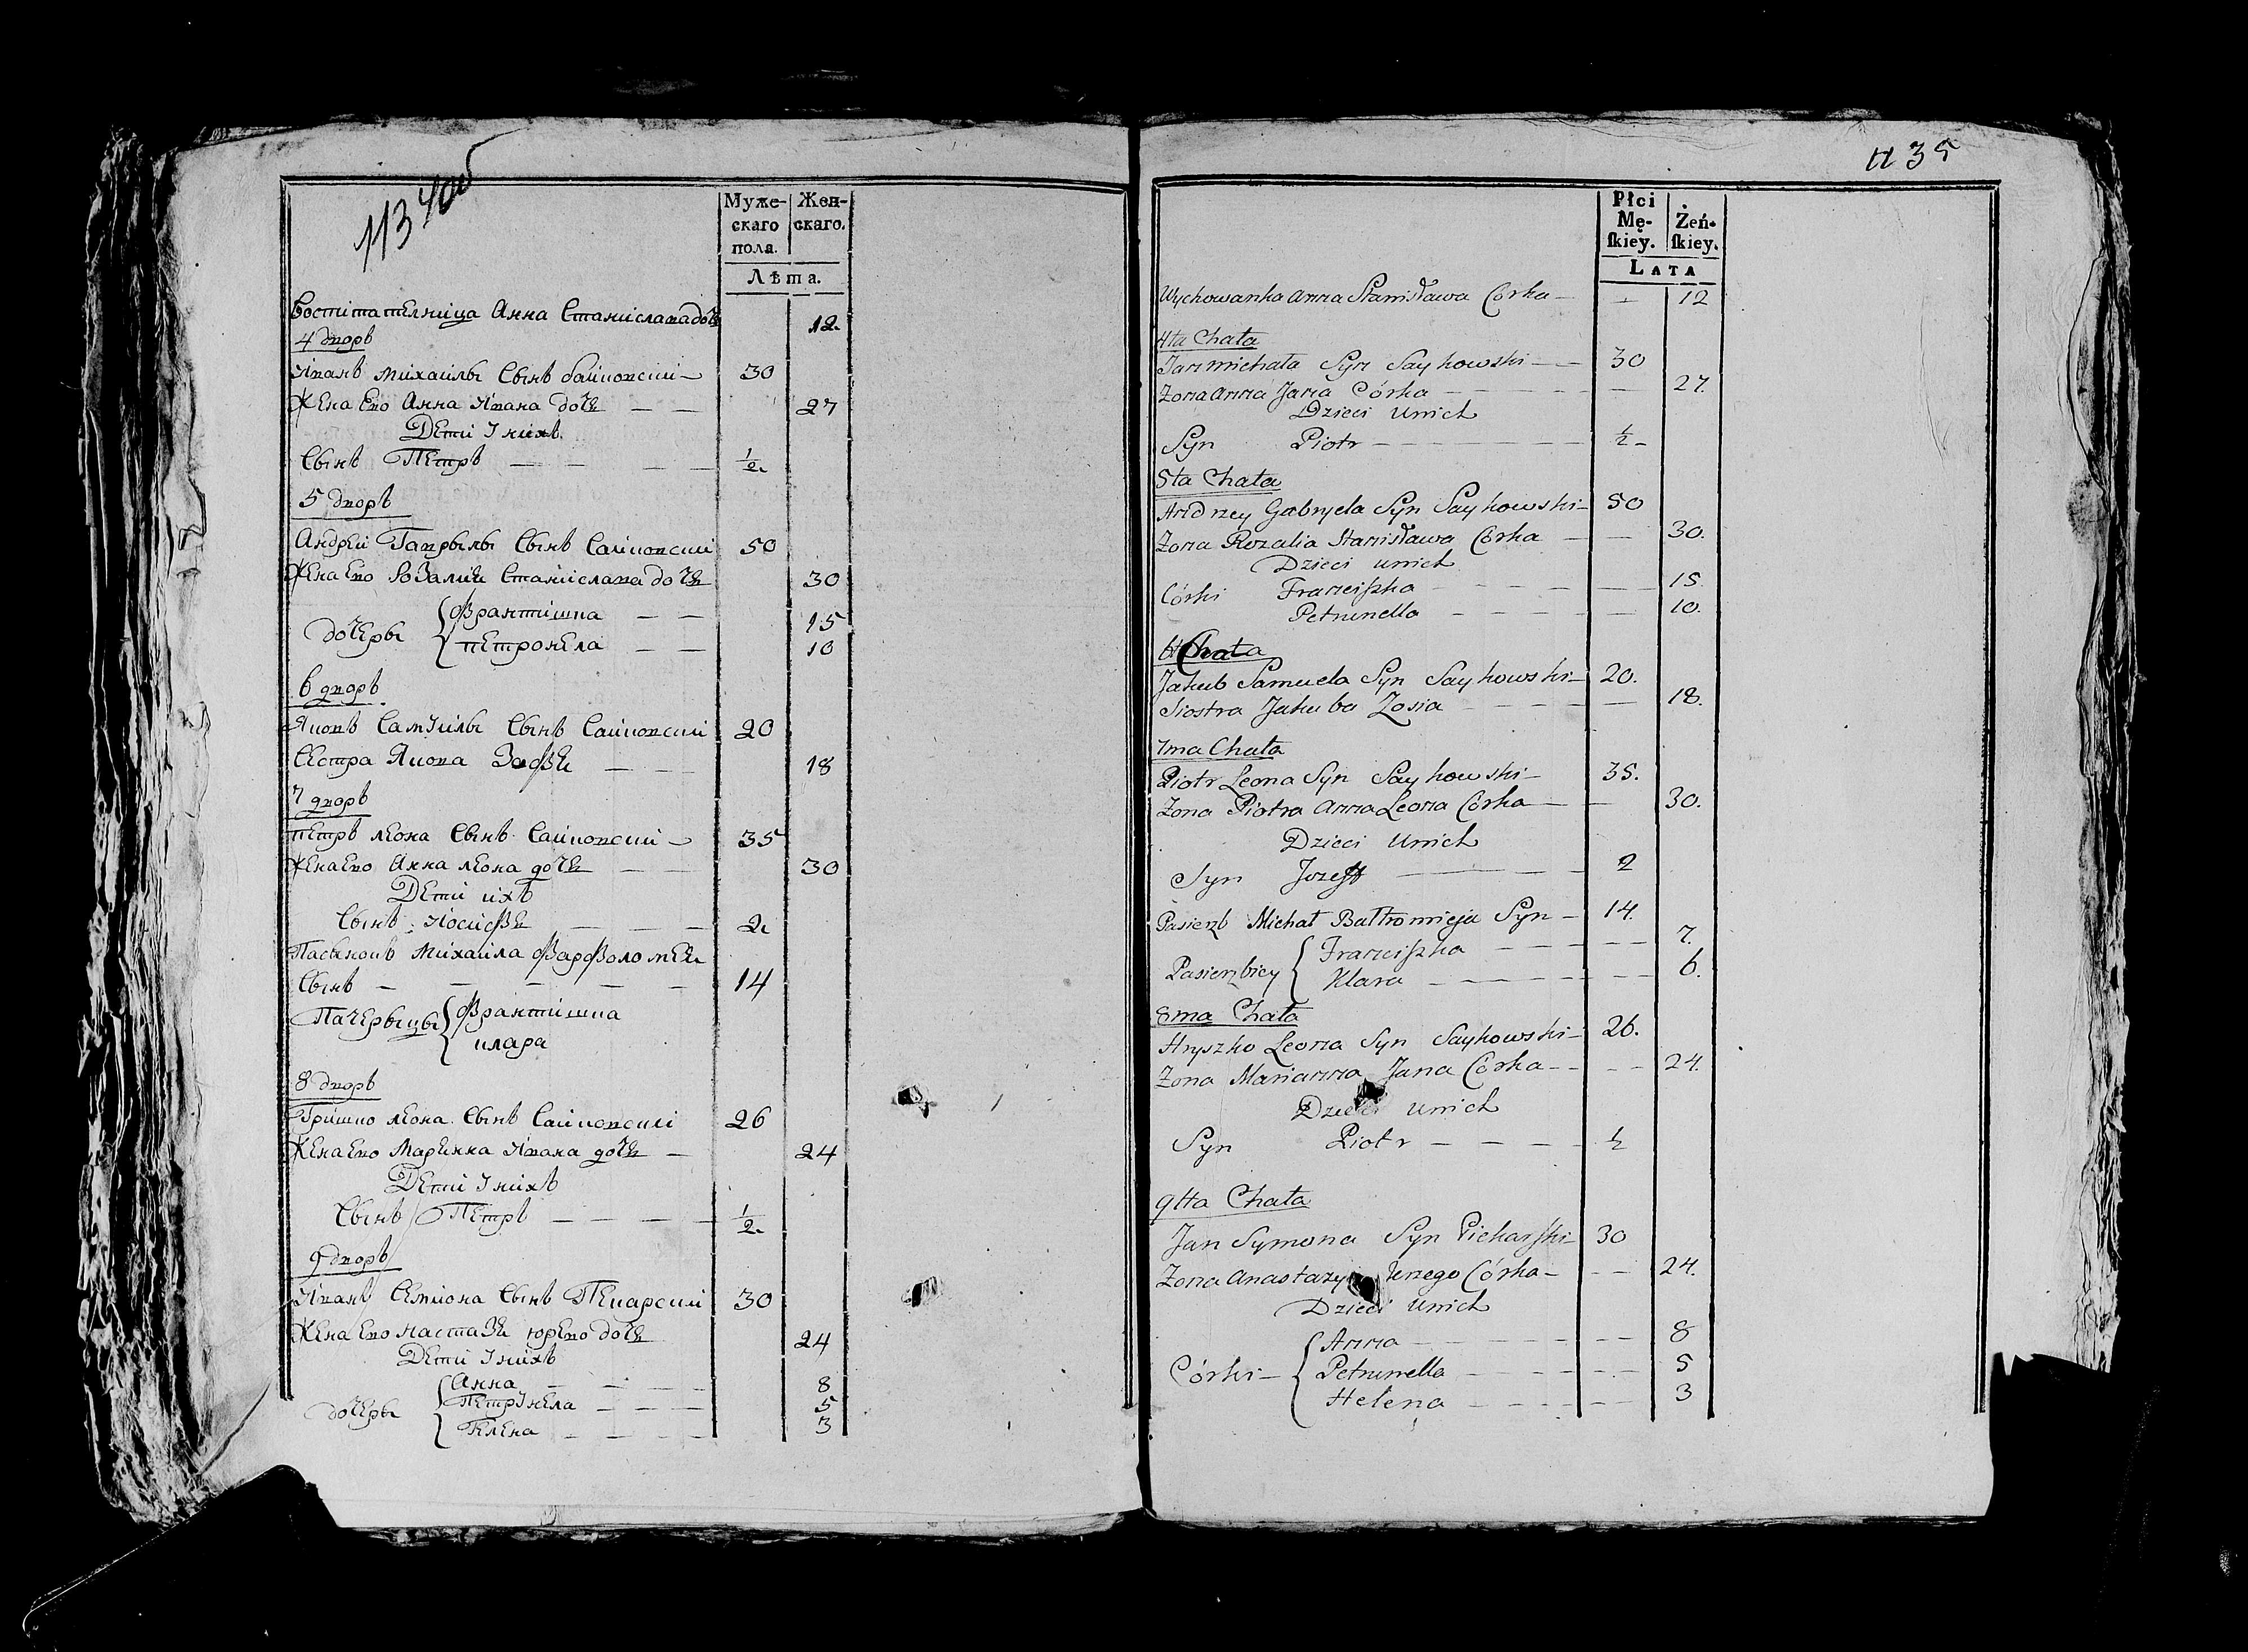 113
Муже-
скаго
пола.
Жен-
скаго.
Лѣта.
Воспитателница Анна Станислава дочь 12.
4 дворъ
Иванъ Михайлы Сынъ Сайковски 30
Жена Ево Анна Ивана дочь — — 27
Дети У нихъ
Сынъ Петръ — — — — 1/2
5 дворъ
Андрей Гаврылы Сынъ Сайковски 50
Жена Ево Розалия Станислава дочь 30
дочеры { Франтишка — — 15
Петронела — — 10
6 дворъ
Яковъ Самуилы Сынъ Сайковски 20
Сестра Якова Зофья — — — 18
7 дворъ
Петръ Леона Сынъ Сайковски — 35
Жена Ево Анна Леона дочь — — 30
Дети ихъ
Сынъ Иосифъ — — — 2
Пасынокъ Михайла Фарфоломея
Сынъ — — — — — 14
Пачерыцы { Франтишка
клара
8 дворъ
Гришко Леона Сынъ Сайковски 26
Жена Ево Марьяна Ивана дочь — 24
Дети У нихъ
Сынъ Петръ — — — — 1/2
9 дворъ
Иванъ Семиона Сынъ Пекарски 30
Жена Ево Настазя Юрево дочь 24
Дети У нихъ
дочеры { Анна — — — — 8
Петрунела — — — 5
Гелена — — — — 3
35
Płci
Mę-
ſkiey.
Żeń-
ſkiey.
LATA
Wychowanka Anna Stanisława Córka — — 12
4ta Chata
Jan Michała Syn Saykowski — — 30
Zona Anna Jana Córka — — — — 27.
Dzieci u nich
Syn Piotr — — — — — — 1/2 —
5ta Chata
Andrzey Gabryela Syn Saykowski — 50
Zona Rozalia Stanisława Córka — — 30.
Dzieci u nich
Córki Franciszka — — — — 15
Petrunella — — — — — 10.
6ta Chata
Jakub Samuela Syn Saykowski — 20.
Siostra Jakuba Zosia — — — — — 18.
7ma Chata
Piotr Leona Syn Saykowski — 35.
Zona Piotra Anna Leona Córka — — 30.
Dzieci u nich
Syn Jozeff — — — — — 2
Pasierzb Michał Bałtromieja Syn — 14.
Pasierzbicy { Franciszka — — — — — 7.
Klara — — — — — — 6.
8ma Chata
Hryszko Leona Syn Saykowski — 26.
Zona Marianna Jana Córka — — — — 24.
Dzieci u nich
Syn Piotr — — — — 1/2
9tta Chata
Jan Symona Syn Piekarſki — 30
Zona Anastazy Jerzego Córka — — — 24.
Dzieci u nich
Córki — { Anna — — — — — — 8
Petrunella — — — — — — 5
Helena — — — — — — 3